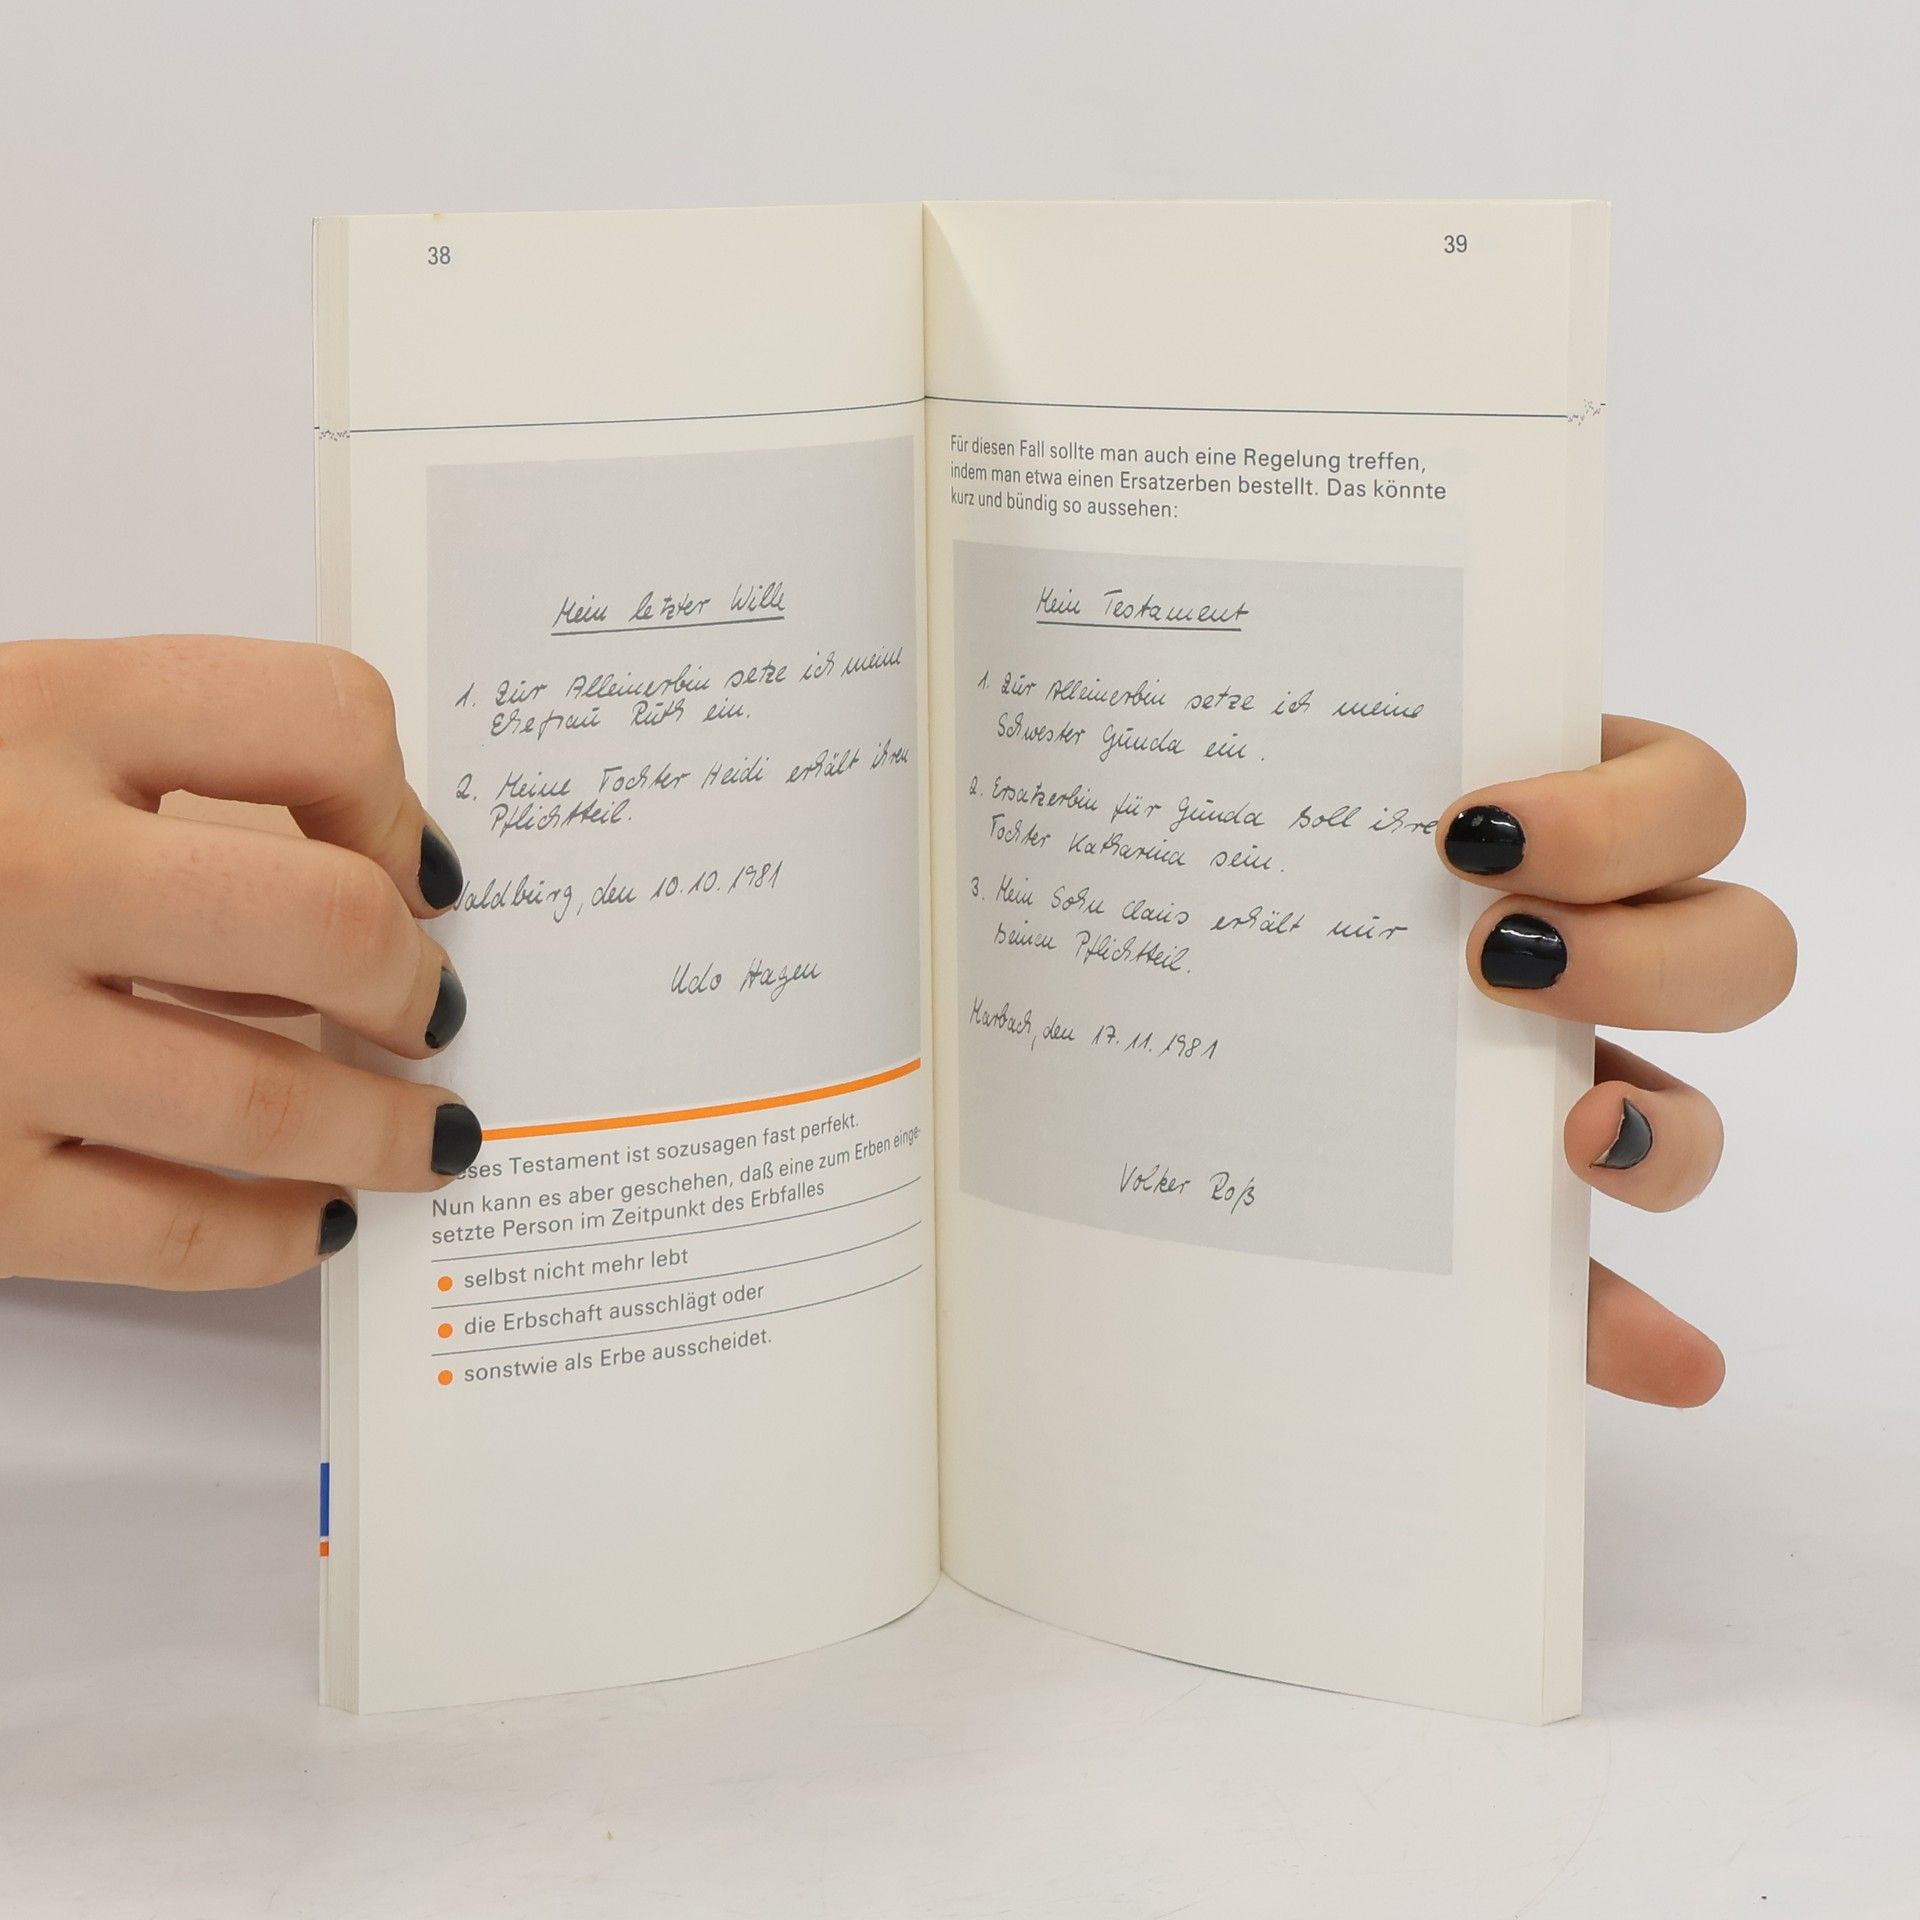 38
Mein letzter Wille
1. Zur Alleinerbin setze ich meine
Ehefrau Ruth ein.
2. Meine Tochter Heidi erhält ihren
Pflichtteil.
Waldburg, den 10.10.1981
Udo Hagen
Dieses Testament ist sozusagen fast perfekt.
Nun kann es aber geschehen, daß eine zum Erben einge-
setzte Person im Zeitpunkt des Erbfalles
selbst nicht mehr lebt
die Erbschaft ausschlägt oder
sonstwie als Erbe ausscheidet.
39
Für diesen Fall sollte man auch eine Regelung treffen,
indem man etwa einen Ersatzerben bestellt. Das könnte
kurz und bündig so aussehen:
Mein Testament
1. Zur Alleinerbin setze ich meine
Schwester Gunda ein.
2. Ersatzerbin für Gunda soll ihre
Tochter Katharina sein.
3. Mein Sohn Claus erhält nur
seinen Pflichtteil.
Marbach, den 17.11.1981
Volker Roß